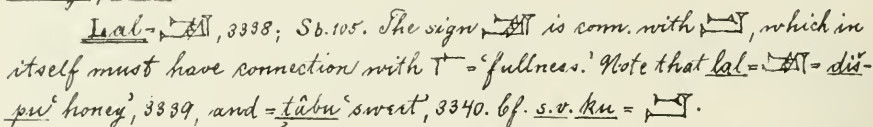 Lal = 𒋭, 3338; Sb. 105. The sign 𒋭 is conn. with 𒂠, which in
itself must have connection with 𒇲 = 'fullness.' Note that lal = 𒋭 = diš-
pu 'honey', 3339, and = tâbu 'sweet', 3340. Cf. s.v. ku = 𒂠.